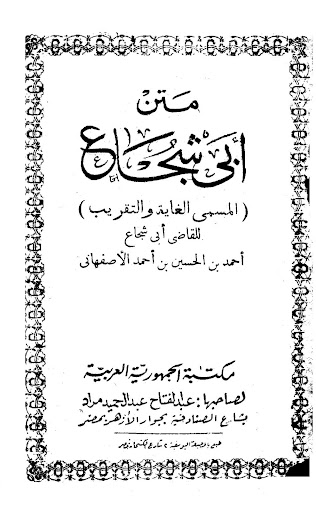 متن
أبى شجاع
( المسمى الغاية والتقريب )
للقاضى أبى شجاع
أحمد بن الحسين بن أحمد الأصفهانى
مكتبة الجمهورية العربية
لصاحبها : عبد الفتاح عبد الحميد مراد
بشارع الصنادقية بجوار الأزهر بمصر